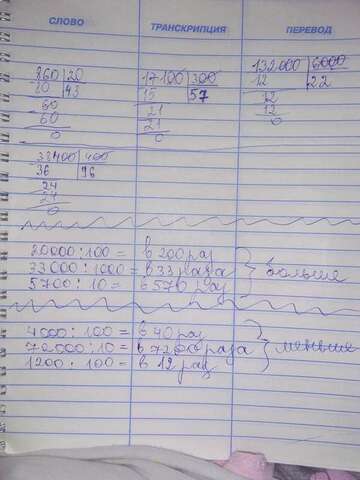 СЛОВО ТРАНСКРИПЦИЯ ПЕРЕВОД
860 20 17100 300 132000 6000
80 43 15 57 12 22
60 21 12
60 21 12
0 0 0
38400 400
36 96
24
24
0
20000:100= в 200 раз
33000:1000= в 33 раза больше
5700:10= в 570 раз
4000:100= в 40 раз
72000:10= в 7200 раза меньше
1200:100= в 12 раз